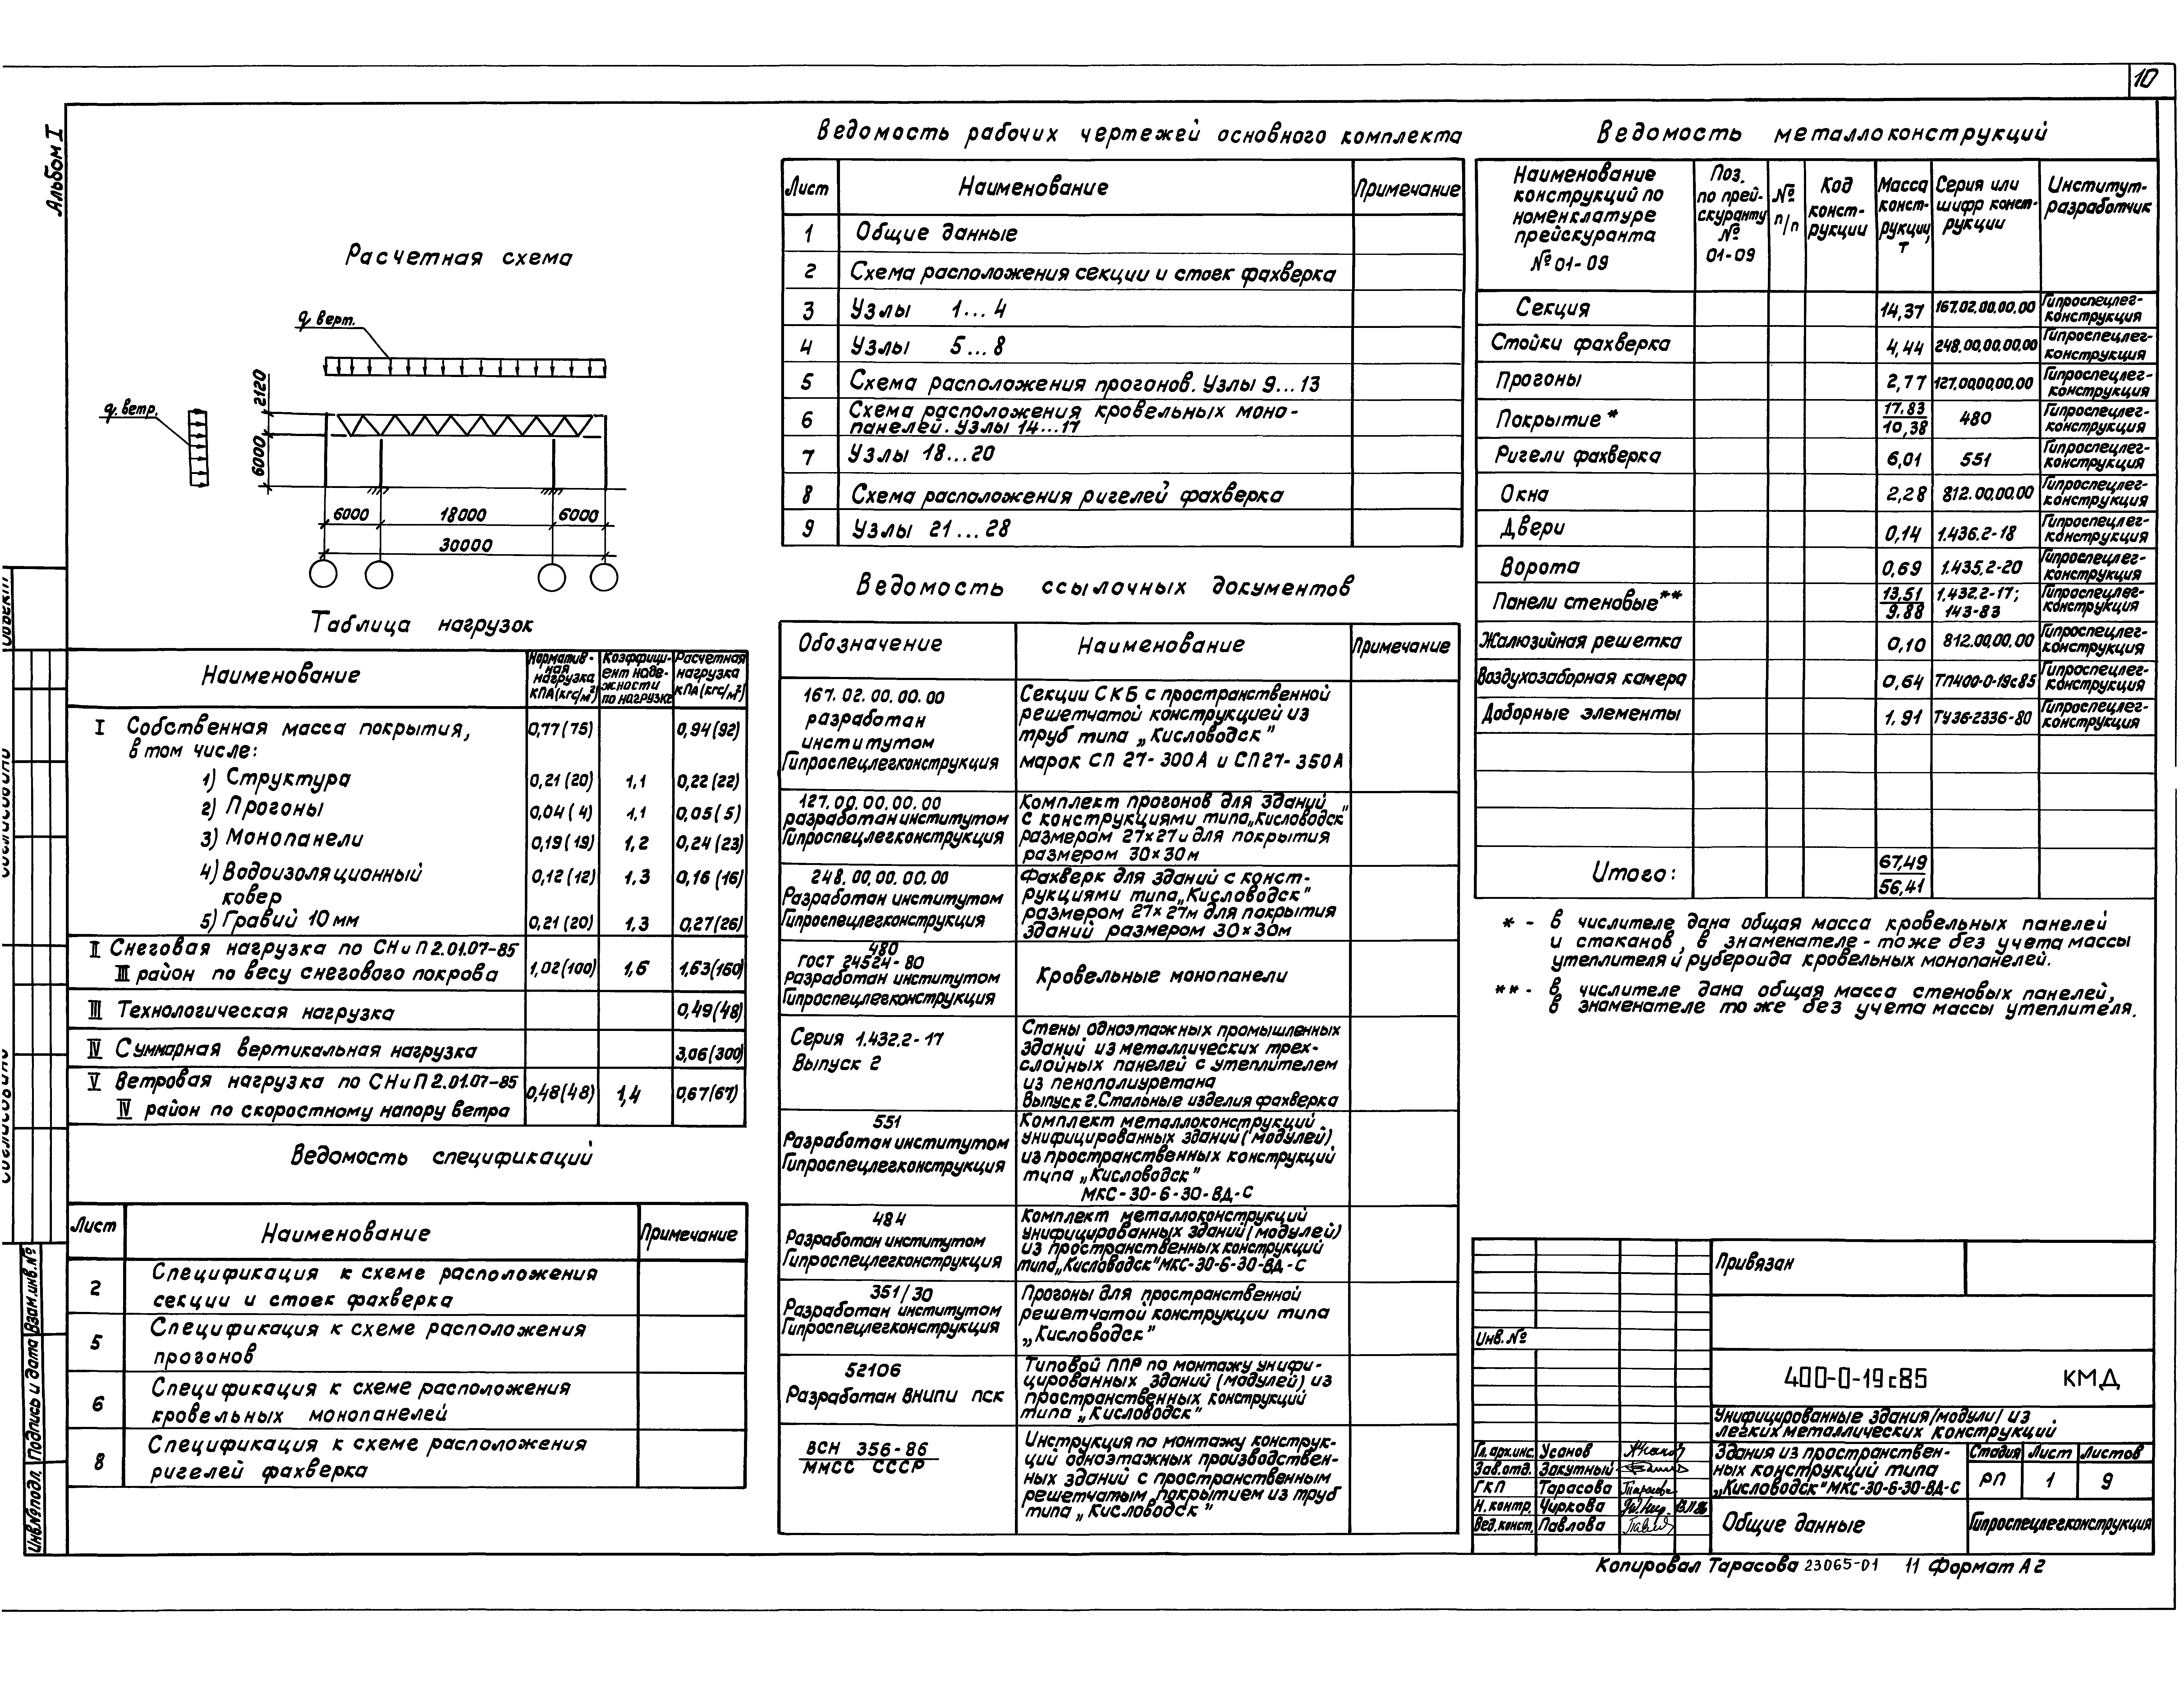 10
Альбом I
Расчетная схема
q верт.
q ветр.
2120
6000
6000 18000 6000
30000
Таблица нагрузок
Наименование
Норматив-
ная
нагрузка
кПа(кгс/м²)
Коэффици-
ент наде-
жности
по нагрузке
Расчетная
нагрузка
кПа(кгс/м²)
I Собственная масса покрытия, 0,77(75) 0,94(92)
в том числе:
1) Структура 0,21(20) 1,1 0,22(22)
2) Прогоны 0,04(4) 1,1 0,05(5)
3) Монопанели 0,19(19) 1,2 0,24(23)
4) Водоизоляционный 0,12(12) 1,3 0,16(16)
ковер
5) Гравий 10 мм 0,21(20) 1,3 0,27(26)
II Снеговая нагрузка по СНиП 2.01.07-85
III район по весу снегового покрова 1,02(100) 1,6 1,63(160)
III Технологическая нагрузка 0,49(48)
IV Суммарная вертикальная нагрузка 3,06(300)
V Ветровая нагрузка по СНиП 2.01.07-85
IV район по скоростному напору ветра 0,48(48) 1,4 0,67(67)
Ведомость спецификаций
Лист Наименование Примечание
2 Спецификация к схеме расположения
секции и стоек фахверка
5 Спецификация к схеме расположения
прогонов
6 Спецификация к схеме расположения
кровельных монопанелей
8 Спецификация к схеме расположения
ригелей фахверка
Ведомость рабочих чертежей основного комплекта
Лист Наименование Примечание
1 Общие данные
2 Схема расположения секции и стоек фахверка
3 Узлы 1...4
4 Узлы 5...8
5 Схема расположения прогонов. Узлы 9...13
6 Схема расположения кровельных моно-
панелей. Узлы 14...17
7 Узлы 18...20
8 Схема расположения ригелей фахверка
9 Узлы 21...28
Ведомость ссылочных документов
Обозначение Наименование Примечание
167.02.00.00.00
разработан
институтом
Гипроспецлегконструкция
Секции СКБ с пространственной
решетчатой конструкцией из
труб типа „Кисловодск"
марок СП 27-300А и СП27-350А
127.00.00.00.00
разработан институтом
Гипроспецлегконструкция
Комплект прогонов для зданий
с конструкциями типа„Кисловодск"
размером 27×27и для покрытия
размером 30×30м
248.00.00.00.00
Разработан институтом
Гипроспецлегконструкция
Фахверк для зданий с конст-
рукциями типа„Кисловодск"
размером 27×27м для покрытия
зданий размером 30×30м
480
ГОСТ 24524-80
Разработан институтом
Гипроспецлегконструкция
Кровельные монопанели
Серия 1.432.2-17
Выпуск 2
Стены одноэтажных промышленных
зданий из металлических трех-
слойных панелей с утеплителем
из пенополиуретана
Выпуск 2.Стальные изделия фахверка
551
Разработан институтом
Гипроспецлегконструкция
Комплект металлоконструкций
унифицированных зданий(модулей)
из пространственных конструкций
типа „Кисловодск"
МКС-30-6-30-ВД-С
484
Разработан институтом
Гипроспецлегконструкция
Комплект металлоконструкций
унифицированных зданий(модулей)
из пространственных конструкций
типа„Кисловодск"МКС-30-6-30-ВД-С
351/30
Разработан институтом
Гипроспецлегконструкция
Прогоны для пространственной
решетчатой конструкции типа
„Кисловодск"
52106
Разработан ВНИПИ ПСК
Типовой ППР по монтажу унифи-
цированных зданий (модулей) из
пространственных конструкций
типа „Кисловодск"
ВСН 356-86
ММСС СССР
Инструкция по монтажу конструк-
ций одноэтажных производствен-
ных зданий с пространственным
решетчатым покрытием из труб
типа „Кисловодск"
Ведомость металлоконструкций
Наименование
конструкций по
номенклатуре
прейскуранта
№ 01-09
Поз.
по прей-
скуранту
№
01-09
№
п/п
Код
конст-
рукции
Масса
конст-
рукции,
т
Серия или
шифр конст-
рукции
Институт-
разработчик
Секция 14,37 167.02.00.00.00 Гипроспецлег-
конструкция
Стойки фахверка 4,44 248.00.00.00.00 Гипроспецлег-
конструкция
Прогоны 2,77 127.00.00.00.00 Гипроспецлег-
конструкция
Покрытие * 17.83 480 Гипроспецлег-
10,38 конструкция
Ригели фахверка 6,01 551 Гипроспецлег-
конструкция
Окна 2,28 812.00.00.00 Гипроспецлег-
конструкция
Двери 0,14 1.436.2-18 Гипроспецлег-
конструкция
Ворота 0,69 1.435.2-20 Гипроспецлег-
конструкция
Панели стеновые** 13,51 1.432.2-17; Гипроспецлег-
9.88 143-83 конструкция
Жалюзийная решетка 0,10 812.00.00.00 Гипроспецлег-
конструкция
Воздухозаборная камера 0,64 ТП400-0-19с85 Гипроспецлег-
конструкция
Доборные элементы 1,91 ТУ36-2336-80 Гипроспецлег-
конструкция
Итого: 67,49
56,41
* - в числителе дана общая масса кровельных панелей
и стаканов, в знаменателе - тоже без учета массы
утеплителя и рубероида кровельных монопанелей.
** - в числителе дана общая масса стеновых панелей,
в знаменателе то же без учета массы утеплителя.
Привязан
Инв.№
400-0-19с85 КМД
Унифицированные здания/модули/ из
легких металлических конструкций
Гл.арх.инс. Усанов
Зав.отд. Закутный
ГКП Тарасова
Н.контр. Чиркова
Вед.конст. Павлова
Здания из пространствен-
ных конструкций типа
„Кисловодск"МКС-30-6-30-ВД-С
Стадия Лист Листов
РП 1 9
Общие данные
Гипроспецлегконструкция
Копировал Тарасова 23065-01 11 Формат А2
Инв.№подл. Подпись и дата Взам.инв.№